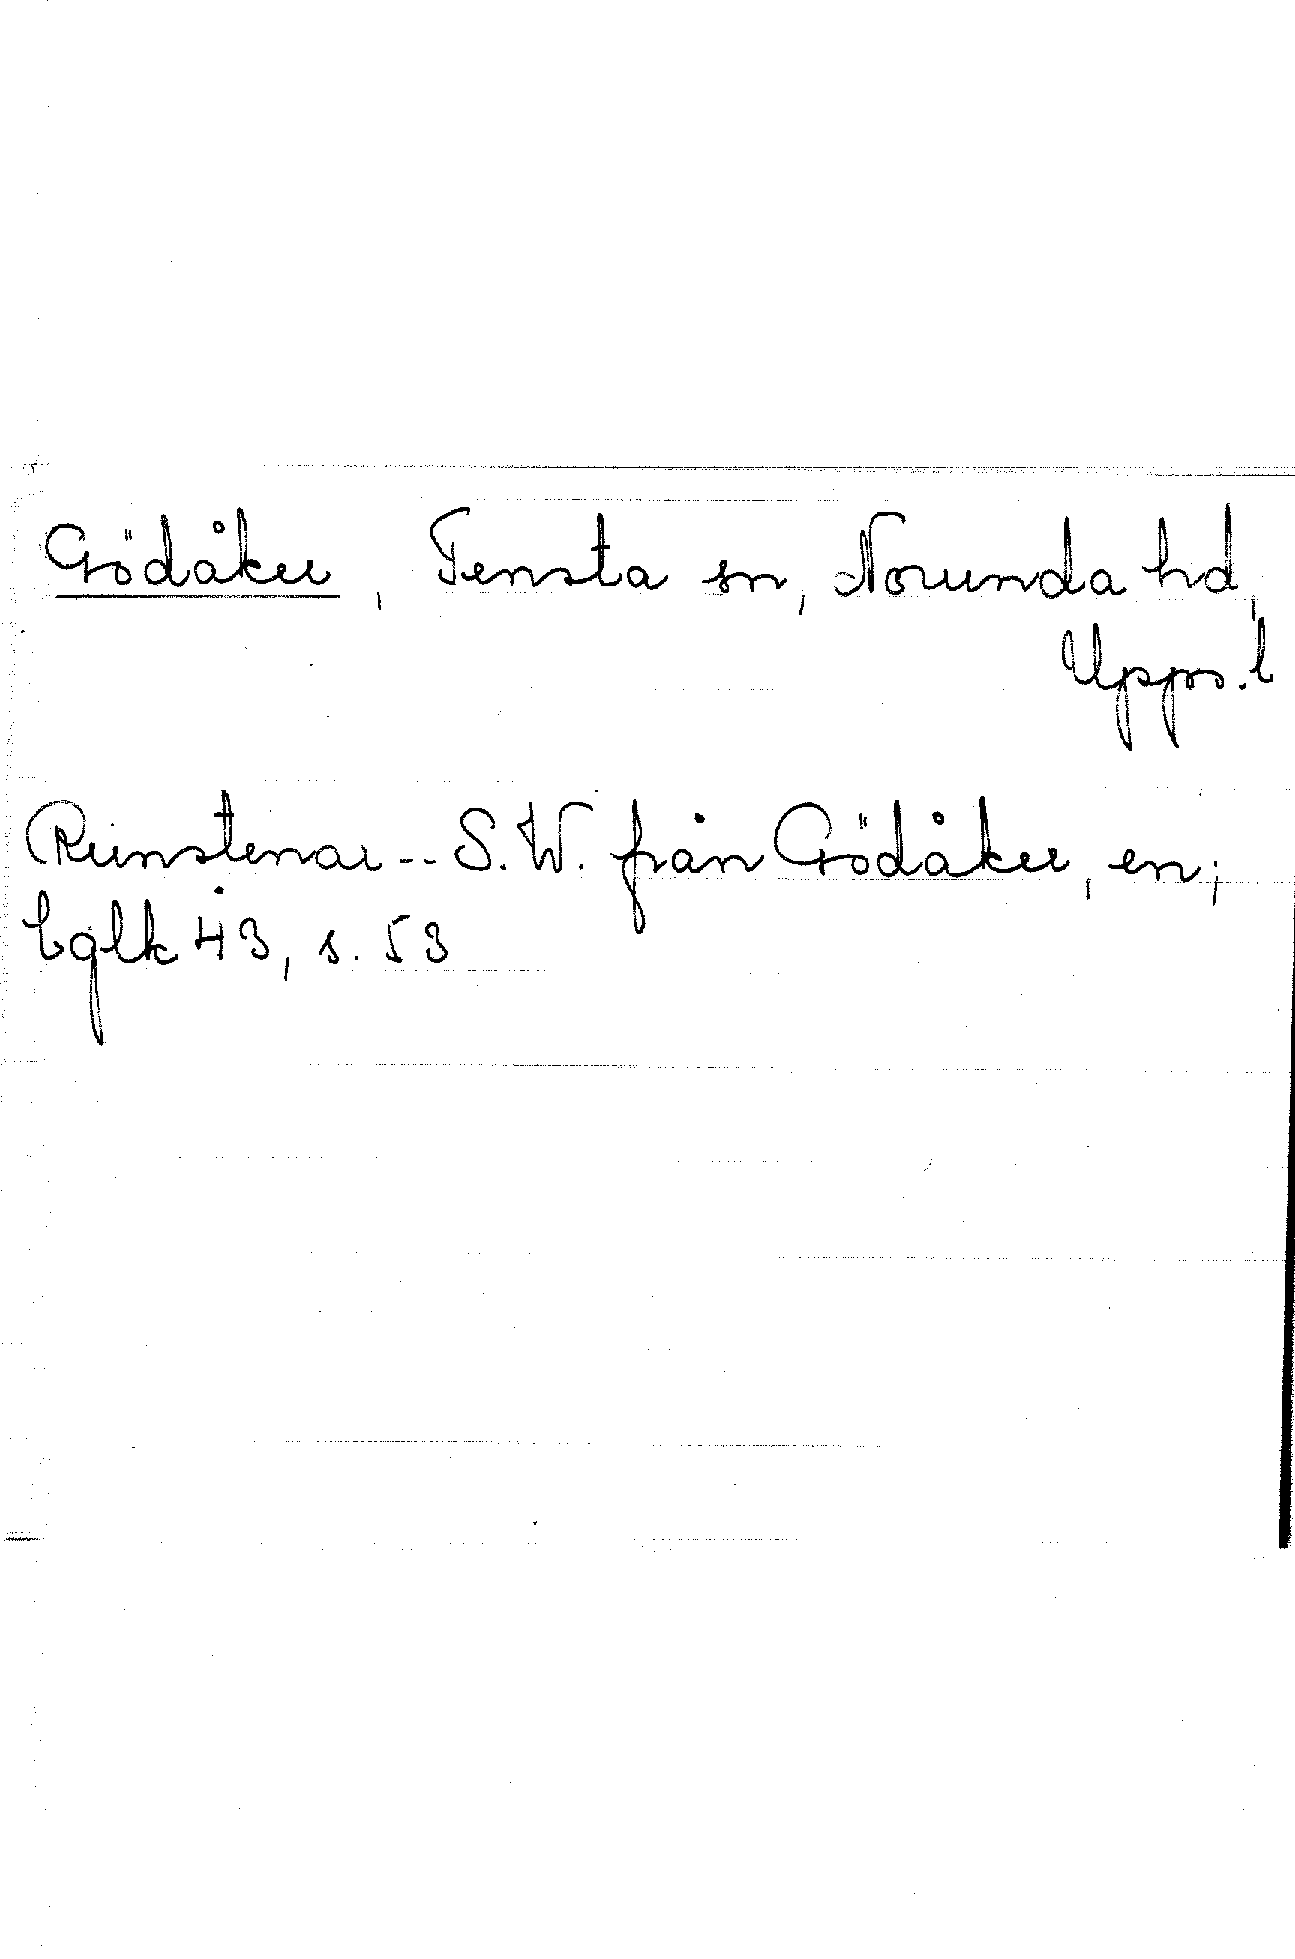 Gödåker, Tensta sn, Norunda hd,
Upps. l
Runstenar -- S.W. från Gödåker, en;
Lglk 43, s. 53